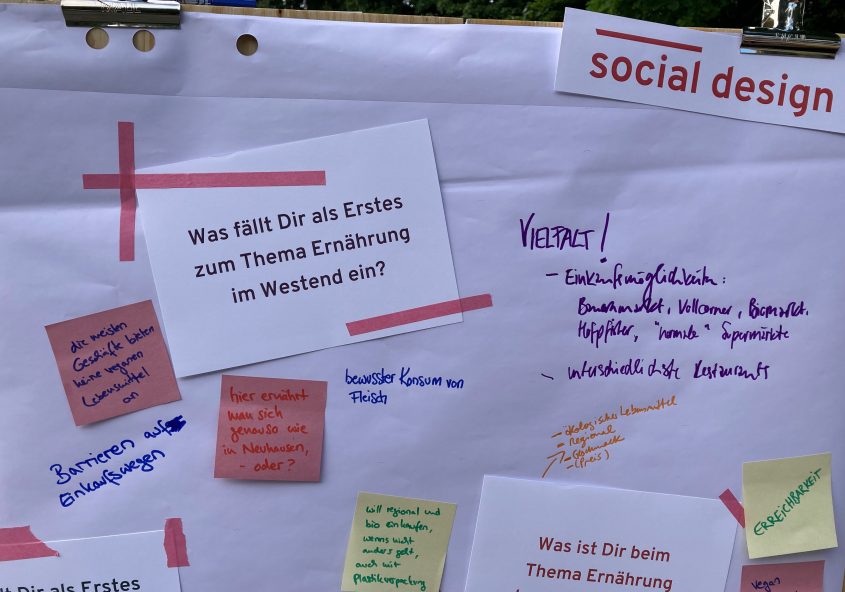 social design
Was fällt Dir als Erstes
zum Thema Ernährung
im Westend ein?
VIELFALT!
- Einkaufsmöglichkeiten:
Bauernmarkt, Vollcorner, Biomarkt,
Hofpfister, "normale" Supermärkte
- unterschiedlichste Restaurants
die meisten
Geschäfte bieten
keine veganen
Lebensmittel
an
hier ernährt
man sich
genauso wie
in Neuhausen,
- oder?
bewusster Konsum von
Fleisch
- ökologisches Lebensmittel
- regional
- Geschmack
- (Preis)
Barrieren auf
Einkaufswegen
will regional und
bio einkaufen,
wenns nicht
anders geht,
auch mit
Plastikverpackung
ERREICHBARKEIT
Was ist Dir beim
Thema Ernährung
vegan
lt Dir als Erstes